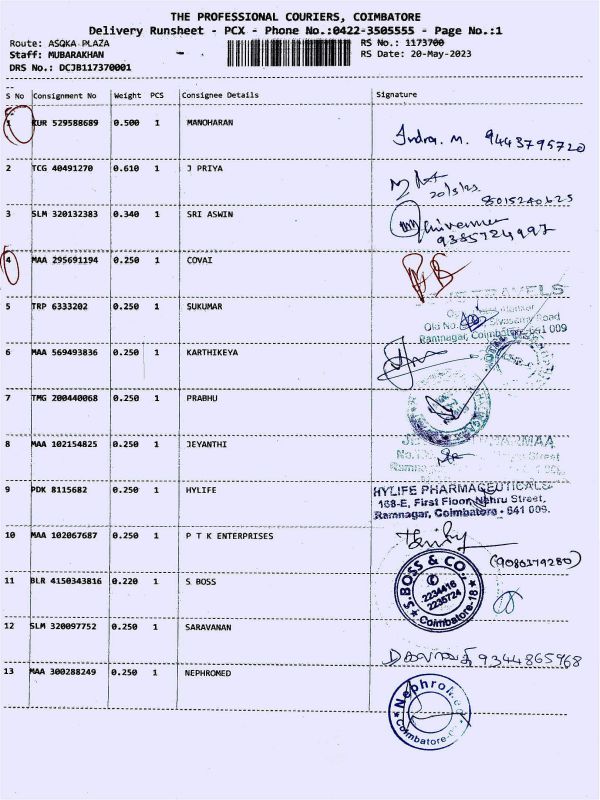 THE PROFESSIONAL COURIERS, COIMBATORE
Delivery Runsheet - PCX - Phone No.:0422-3505555 - Page No.:1
Route: ASQKA PLAZA RS No.: 1173700
Staff: MUBARAKHAN RS Date: 20-May-2023
DRS No.: DCJB117370001
S No Consignment No Weight PCS Consignee Details Signature
1 KUR 529588689 0.500 1 MANOHARAN
Indra. M. 9443795720
2 TCG 40491270 0.610 1 J PRIYA
20/5/23
8015240625
3 SLM 320132383 0.340 1 SRI ASWIN
9385724997
4 MAA 295691194 0.250 1 COVAI
TRAVELS
5 TRP 6333202 0.250 1 SUKUMAR
Old No. Sivasamy Road
Ramnagar, Coimbatore-641 009
6 MAA 569493836 0.250 1 KARTHIKEYA
7 TMG 200440068 0.250 1 PRABHU
8 MAA 102154825 0.250 1 JEYANTHI
Street
9 PDK 8115682 0.250 1 HYLIFE
HYLIFE PHARMACEUTICALS
168-E, First Floor, Nehru Street,
Ramnagar, Coimbatore - 641 009.
10 MAA 102067687 0.250 1 P T K ENTERPRISES
(9080379280)
11 BLR 4150343816 0.220 1 S BOSS
S. BOSS & CO.
2234416
2235724
Coimbatore-18
12 SLM 320097752 0.250 1 SARAVANAN
9344865968
13 MAA 300288249 0.250 1 NEPHROMED
Nephromed
Coimbatore-